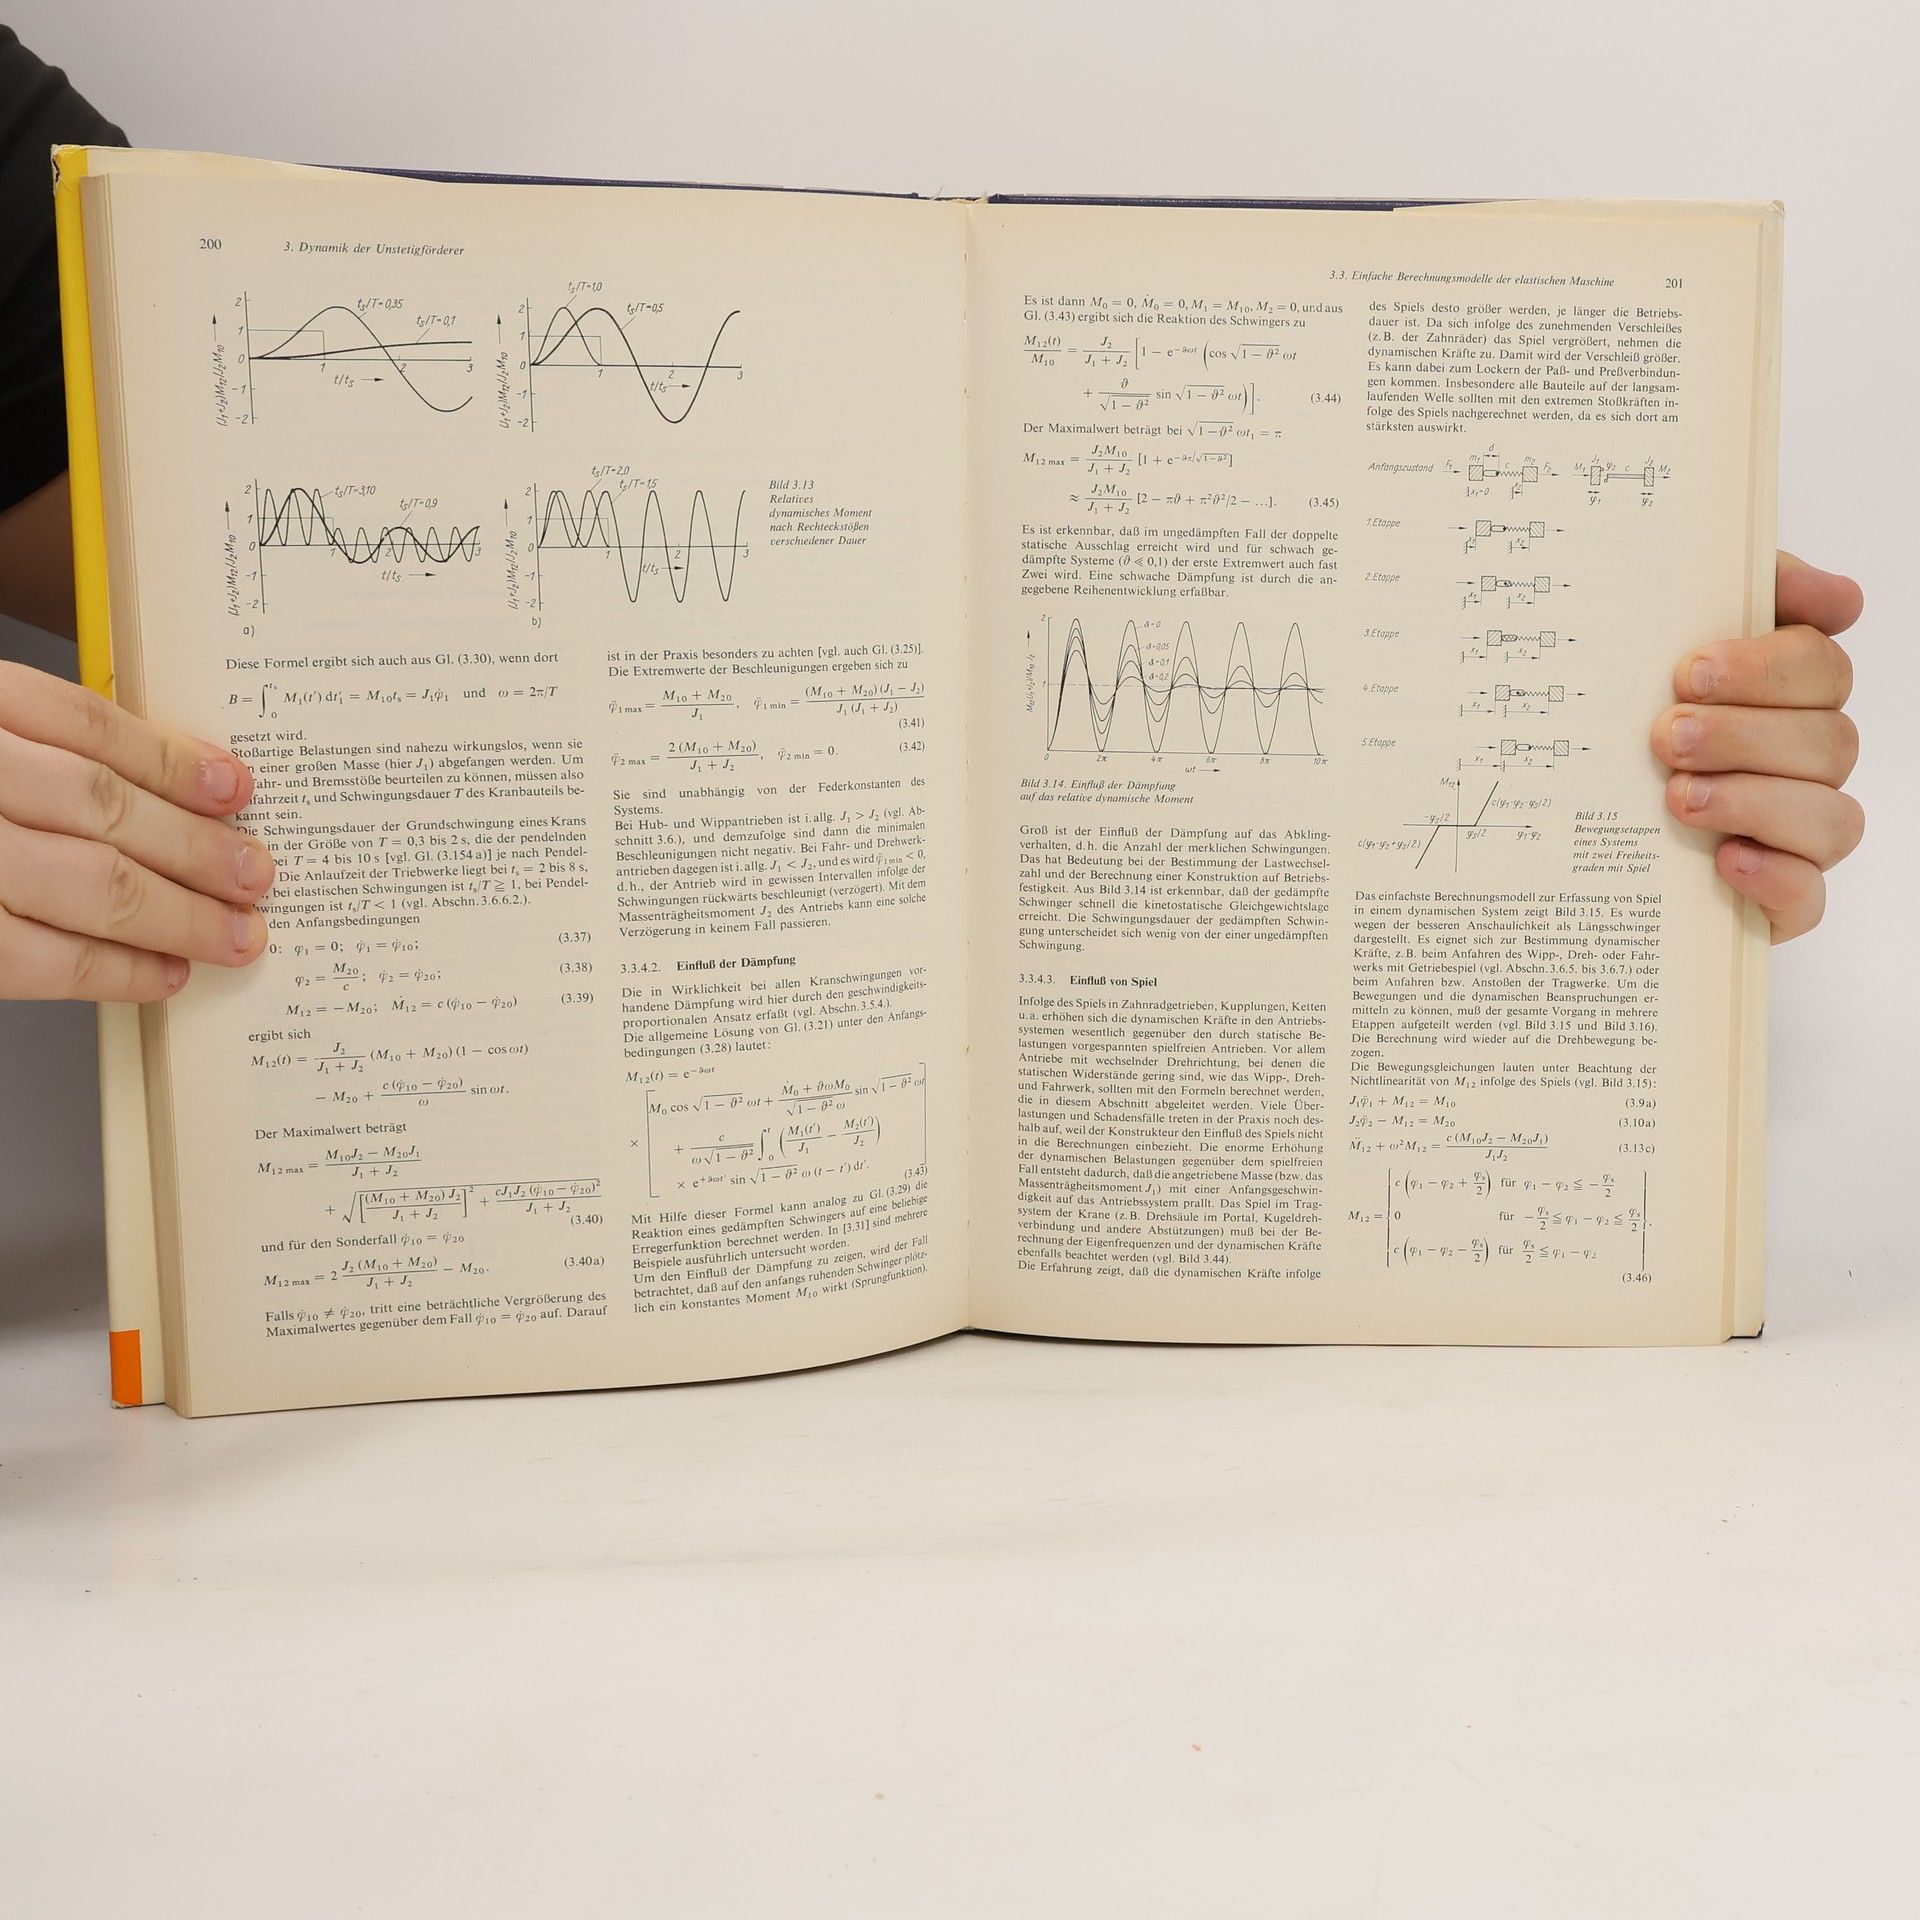 200
3. Dynamik der Unstetigförderer
2
1
0
-1
-2
(J₁+J₂)M₁₂/J₂M₁₀
tₛ/T=0,35
tₛ/T=0,1
1
2
3
t/tₛ
2
1
0
-1
-2
(J₁+J₂)M₁₂/J₂M₁₀
tₛ/T=1,0
tₛ/T=0,5
1
2
3
t/tₛ
2
1
0
-1
-2
(J₁+J₂)M₁₂/J₂M₁₀
tₛ/T=3,10
tₛ/T=0,9
1
2
3
t/tₛ
a)
2
1
0
-1
-2
(J₁+J₂)M₁₂/J₂M₁₀
tₛ/T=2,0
tₛ/T=1,5
1
2
3
t/tₛ
b)
Bild 3.13
Relatives
dynamisches Moment
nach Rechteckstößen
verschiedener Dauer
Diese Formel ergibt sich auch aus Gl. (3.30), wenn dort
B = ∫₀^tₛ M₁(t′) dt₁′ = M₁₀tₛ = J₁φ̇₁ und ω = 2π/T
gesetzt wird.
Stoßartige Belastungen sind nahezu wirkungslos, wenn sie
einer großen Masse (hier J₁) abgefangen werden. Um
fahr- und Bremsstöße beurteilen zu können, müssen also
fahrzeit tₛ und Schwingungsdauer T des Kranbauteils be-
kannt sein.
Die Schwingungsdauer der Grundschwingung eines Krans
in der Größe von T = 0,3 bis 2 s, die der pendelnden
bei T = 4 bis 10 s [vgl. Gl. (3.154a)] je nach Pendel-
Die Anlaufzeit der Triebwerke liegt bei tₛ = 2 bis 8 s,
bei elastischen Schwingungen ist tₛ/T ≧ 1, bei Pendel-
wingungen ist tₛ/T < 1 (vgl. Abschn. 3.6.6.2.).
den Anfangsbedingungen
0: φ₁ = 0; φ̇₁ = φ̇₁₀; (3.37)
φ₂ = M₂₀/c; φ̇₂ = φ̇₂₀; (3.38)
M₁₂ = −M₂₀; Ṁ₁₂ = c (φ̇₁₀ − φ̇₂₀) (3.39)
ergibt sich
M₁₂(t) = J₂/(J₁ + J₂) (M₁₀ + M₂₀) (1 − cos ωt)
− M₂₀ + c (φ̇₁₀ − φ̇₂₀)/ω sin ωt.
Der Maximalwert beträgt
M₁₂ max = (M₁₀J₂ − M₂₀J₁)/(J₁ + J₂)
+ √([(M₁₀ + M₂₀) J₂/(J₁ + J₂)]² + cJ₁J₂ (φ̇₁₀ − φ̇₂₀)²/(J₁ + J₂))
(3.40)
und für den Sonderfall φ̇₁₀ = φ̇₂₀
M₁₂ max = 2 J₂ (M₁₀ + M₂₀)/(J₁ + J₂) − M₂₀. (3.40a)
Falls φ̇₁₀ ≠ φ̇₂₀, tritt eine beträchtliche Vergrößerung des
Maximalwertes gegenüber dem Fall φ̇₁₀ = φ̇₂₀ auf. Darauf
ist in der Praxis besonders zu achten [vgl. auch Gl. (3.25)].
Die Extremwerte der Beschleunigungen ergeben sich zu
φ̈₁ max = (M₁₀ + M₂₀)/J₁, φ̈₁ min = (M₁₀ + M₂₀) (J₁ − J₂)/(J₁ (J₁ + J₂))
(3.41)
φ̈₂ max = 2 (M₁₀ + M₂₀)/(J₁ + J₂), φ̈₂ min = 0. (3.42)
Sie sind unabhängig von der Federkonstanten des
Systems.
Bei Hub- und Wippantrieben ist i. allg. J₁ > J₂ (vgl. Ab-
schnitt 3.6.), und demzufolge sind dann die minimalen
Beschleunigungen nicht negativ. Bei Fahr- und Drehwerk-
antrieben dagegen ist i. allg. J₁ < J₂, und es wird φ̈₁ min < 0,
d. h., der Antrieb wird in gewissen Intervallen infolge der
Schwingungen rückwärts beschleunigt (verzögert). Mit dem
Massenträgheitsmoment J₂ des Antriebs kann eine solche
Verzögerung in keinem Fall passieren.
3.3.4.2. Einfluß der Dämpfung
Die in Wirklichkeit bei allen Kranschwingungen vor-
handene Dämpfung wird hier durch den geschwindigkeits-
proportionalen Ansatz erfaßt (vgl. Abschn. 3.5.4.).
Die allgemeine Lösung von Gl. (3.21) unter den Anfangs-
bedingungen (3.28) lautet:
M₁₂(t) = e^−ϑωt
× [M₀ cos √(1 − ϑ²) ωt + (Ṁ₀ + ϑωM₀)/(√(1 − ϑ²) ω) sin √(1 − ϑ²) ωt
+ c/(ω√(1 − ϑ²)) ∫₀^t (M₁(t′)/J₁ − M₂(t′)/J₂)
× e^+ϑωt′ sin √(1 − ϑ²) ω (t − t′) dt′.] (3.43)
Mit Hilfe dieser Formel kann analog zu Gl. (3.29) die
Reaktion eines gedämpften Schwingers auf eine beliebige
Erregerfunktion berechnet werden. In [3.31] sind mehrere
Beispiele ausführlich untersucht worden.
Um den Einfluß der Dämpfung zu zeigen, wird der Fall
betrachtet, daß auf den anfangs ruhenden Schwinger plötz-
lich ein konstantes Moment M₁₀ wirkt (Sprungfunktion).
3.3. Einfache Berechnungsmodelle der elastischen Maschine
201
Es ist dann M₀ = 0, Ṁ₀ = 0, M₁ = M₁₀, M₂ = 0, und aus
Gl. (3.43) ergibt sich die Reaktion des Schwingers zu
M₁₂(t)/M₁₀ = J₂/(J₁ + J₂) [1 − e^−ϑωt (cos √(1 − ϑ²) ωt
+ ϑ/√(1 − ϑ²) sin √(1 − ϑ²) ωt)]. (3.44)
Der Maximalwert beträgt bei √(1 − ϑ²) ωt₁ = π
M₁₂ max = J₂M₁₀/(J₁ + J₂) [1 + e^−ϑπ/√(1−ϑ²)]
≈ J₂M₁₀/(J₁ + J₂) [2 − πϑ + π²ϑ²/2 − ...]. (3.45)
Es ist erkennbar, daß im ungedämpften Fall der doppelte
statische Ausschlag erreicht wird und für schwach ge-
dämpfte Systeme (ϑ ≪ 0,1) der erste Extremwert auch fast
Zwei wird. Eine schwache Dämpfung ist durch die an-
gegebene Reihenentwicklung erfaßbar.
2
1
0
M₁₂(J₁+J₂)/M₁₀ J₂
ϑ=0
ϑ=0,05
ϑ=0,1
ϑ=0,2
2π
4π
6π
8π
10π
ωt
Bild 3.14. Einfluß der Dämpfung
auf das relative dynamische Moment
Groß ist der Einfluß der Dämpfung auf das Abkling-
verhalten, d. h. die Anzahl der merklichen Schwingungen.
Das hat Bedeutung bei der Bestimmung der Lastwechsel-
zahl und der Berechnung einer Konstruktion auf Betriebs-
festigkeit. Aus Bild 3.14 ist erkennbar, daß der gedämpfte
Schwinger schnell die kinetostatische Gleichgewichtslage
erreicht. Die Schwingungsdauer der gedämpften Schwin-
gung unterscheidet sich wenig von der einer ungedämpften
Schwingung.
3.3.4.3. Einfluß von Spiel
Infolge des Spiels in Zahnradgetrieben, Kupplungen, Ketten
u. a. erhöhen sich die dynamischen Kräfte in den Antriebs-
systemen wesentlich gegenüber den durch statische Be-
lastungen vorgespannten spielfreien Antrieben. Vor allem
Antriebe mit wechselnder Drehrichtung, bei denen die
statischen Widerstände gering sind, wie das Wipp-, Dreh-
und Fahrwerk, sollten mit den Formeln berechnet werden,
die in diesem Abschnitt abgeleitet werden. Viele Über-
lastungen und Schadensfälle treten in der Praxis noch des-
halb auf, weil der Konstrukteur den Einfluß des Spiels nicht
in die Berechnungen einbezieht. Die enorme Erhöhung
der dynamischen Belastungen gegenüber dem spielfreien
Fall entsteht dadurch, daß die angetriebene Masse (bzw. das
Massenträgheitsmoment J₁) mit einer Anfangsgeschwin-
digkeit auf das Antriebssystem prallt. Das Spiel im Trag-
system der Krane (z. B. Drehsäule im Portal, Kugeldreh-
verbindung und andere Abstützungen) muß bei der Be-
rechnung der Eigenfrequenzen und der dynamischen Kräfte
ebenfalls beachtet werden (vgl. Bild 3.44).
Die Erfahrung zeigt, daß die dynamischen Kräfte infolge
des Spiels desto größer werden, je länger die Betriebs-
dauer ist. Da sich infolge des zunehmenden Verschleißes
(z. B. der Zahnräder) das Spiel vergrößert, nehmen die
dynamischen Kräfte zu. Damit wird der Verschleiß größer.
Es kann dabei zum Lockern der Paß- und Preßverbindun-
gen kommen. Insbesondere alle Bauteile auf der langsam-
laufenden Welle sollten mit den extremen Stoßkräften in-
folge des Spiels nachgerechnet werden, da es sich dort am
stärksten auswirkt.
Anfangszustand F₁ m₁ d c m₂ F₂ M₁ J₁ φₛ c J₂ M₂
x₁=0 x₂ φ₁ φ₂
1.Etappe
x₁ x₂
2.Etappe
x₁ x₂
3.Etappe
x₁ x₂
4.Etappe
x₁ x₂
5.Etappe
x₁ x₂
M₁₂
c(φ₁-φ₂-φₛ/2)
-φₛ/2
φₛ/2
φ₁-φ₂
c(φ₁-φ₂+φₛ/2)
Bild 3.15
Bewegungsetappen
eines Systems
mit zwei Freiheits-
graden mit Spiel
Das einfachste Berechnungsmodell zur Erfassung von Spiel
in einem dynamischen System zeigt Bild 3.15. Es wurde
wegen der besseren Anschaulichkeit als Längsschwinger
dargestellt. Es eignet sich zur Bestimmung dynamischer
Kräfte, z. B. beim Anfahren des Wipp-, Dreh- oder Fahr-
werks mit Getriebespiel (vgl. Abschn. 3.6.5. bis 3.6.7.) oder
beim Anfahren bzw. Anstoßen der Tragwerke. Um die
Bewegungen und die dynamischen Beanspruchungen er-
mitteln zu können, muß der gesamte Vorgang in mehrere
Etappen aufgeteilt werden (vgl. Bild 3.15 und Bild 3.16).
Die Berechnung wird wieder auf die Drehbewegung be-
zogen.
Die Bewegungsgleichungen lauten unter Beachtung der
Nichtlinearität von M₁₂ infolge des Spiels (vgl. Bild 3.15):
J₁φ̈₁ + M₁₂ = M₁₀ (3.9a)
J₂φ̈₂ − M₁₂ = M₂₀ (3.10a)
M̈₁₂ + ω²M₁₂ = c (M₁₀J₂ − M₂₀J₁)/(J₁J₂) (3.13c)
c (φ₁ − φ₂ + φₛ/2) für φ₁ − φ₂ ≦ −φₛ/2
M₁₂ = 0 für −φₛ/2 ≦ φ₁ − φ₂ ≦ φₛ/2.
c (φ₁ − φ₂ − φₛ/2) für φₛ/2 ≦ φ₁ − φ₂
(3.46)